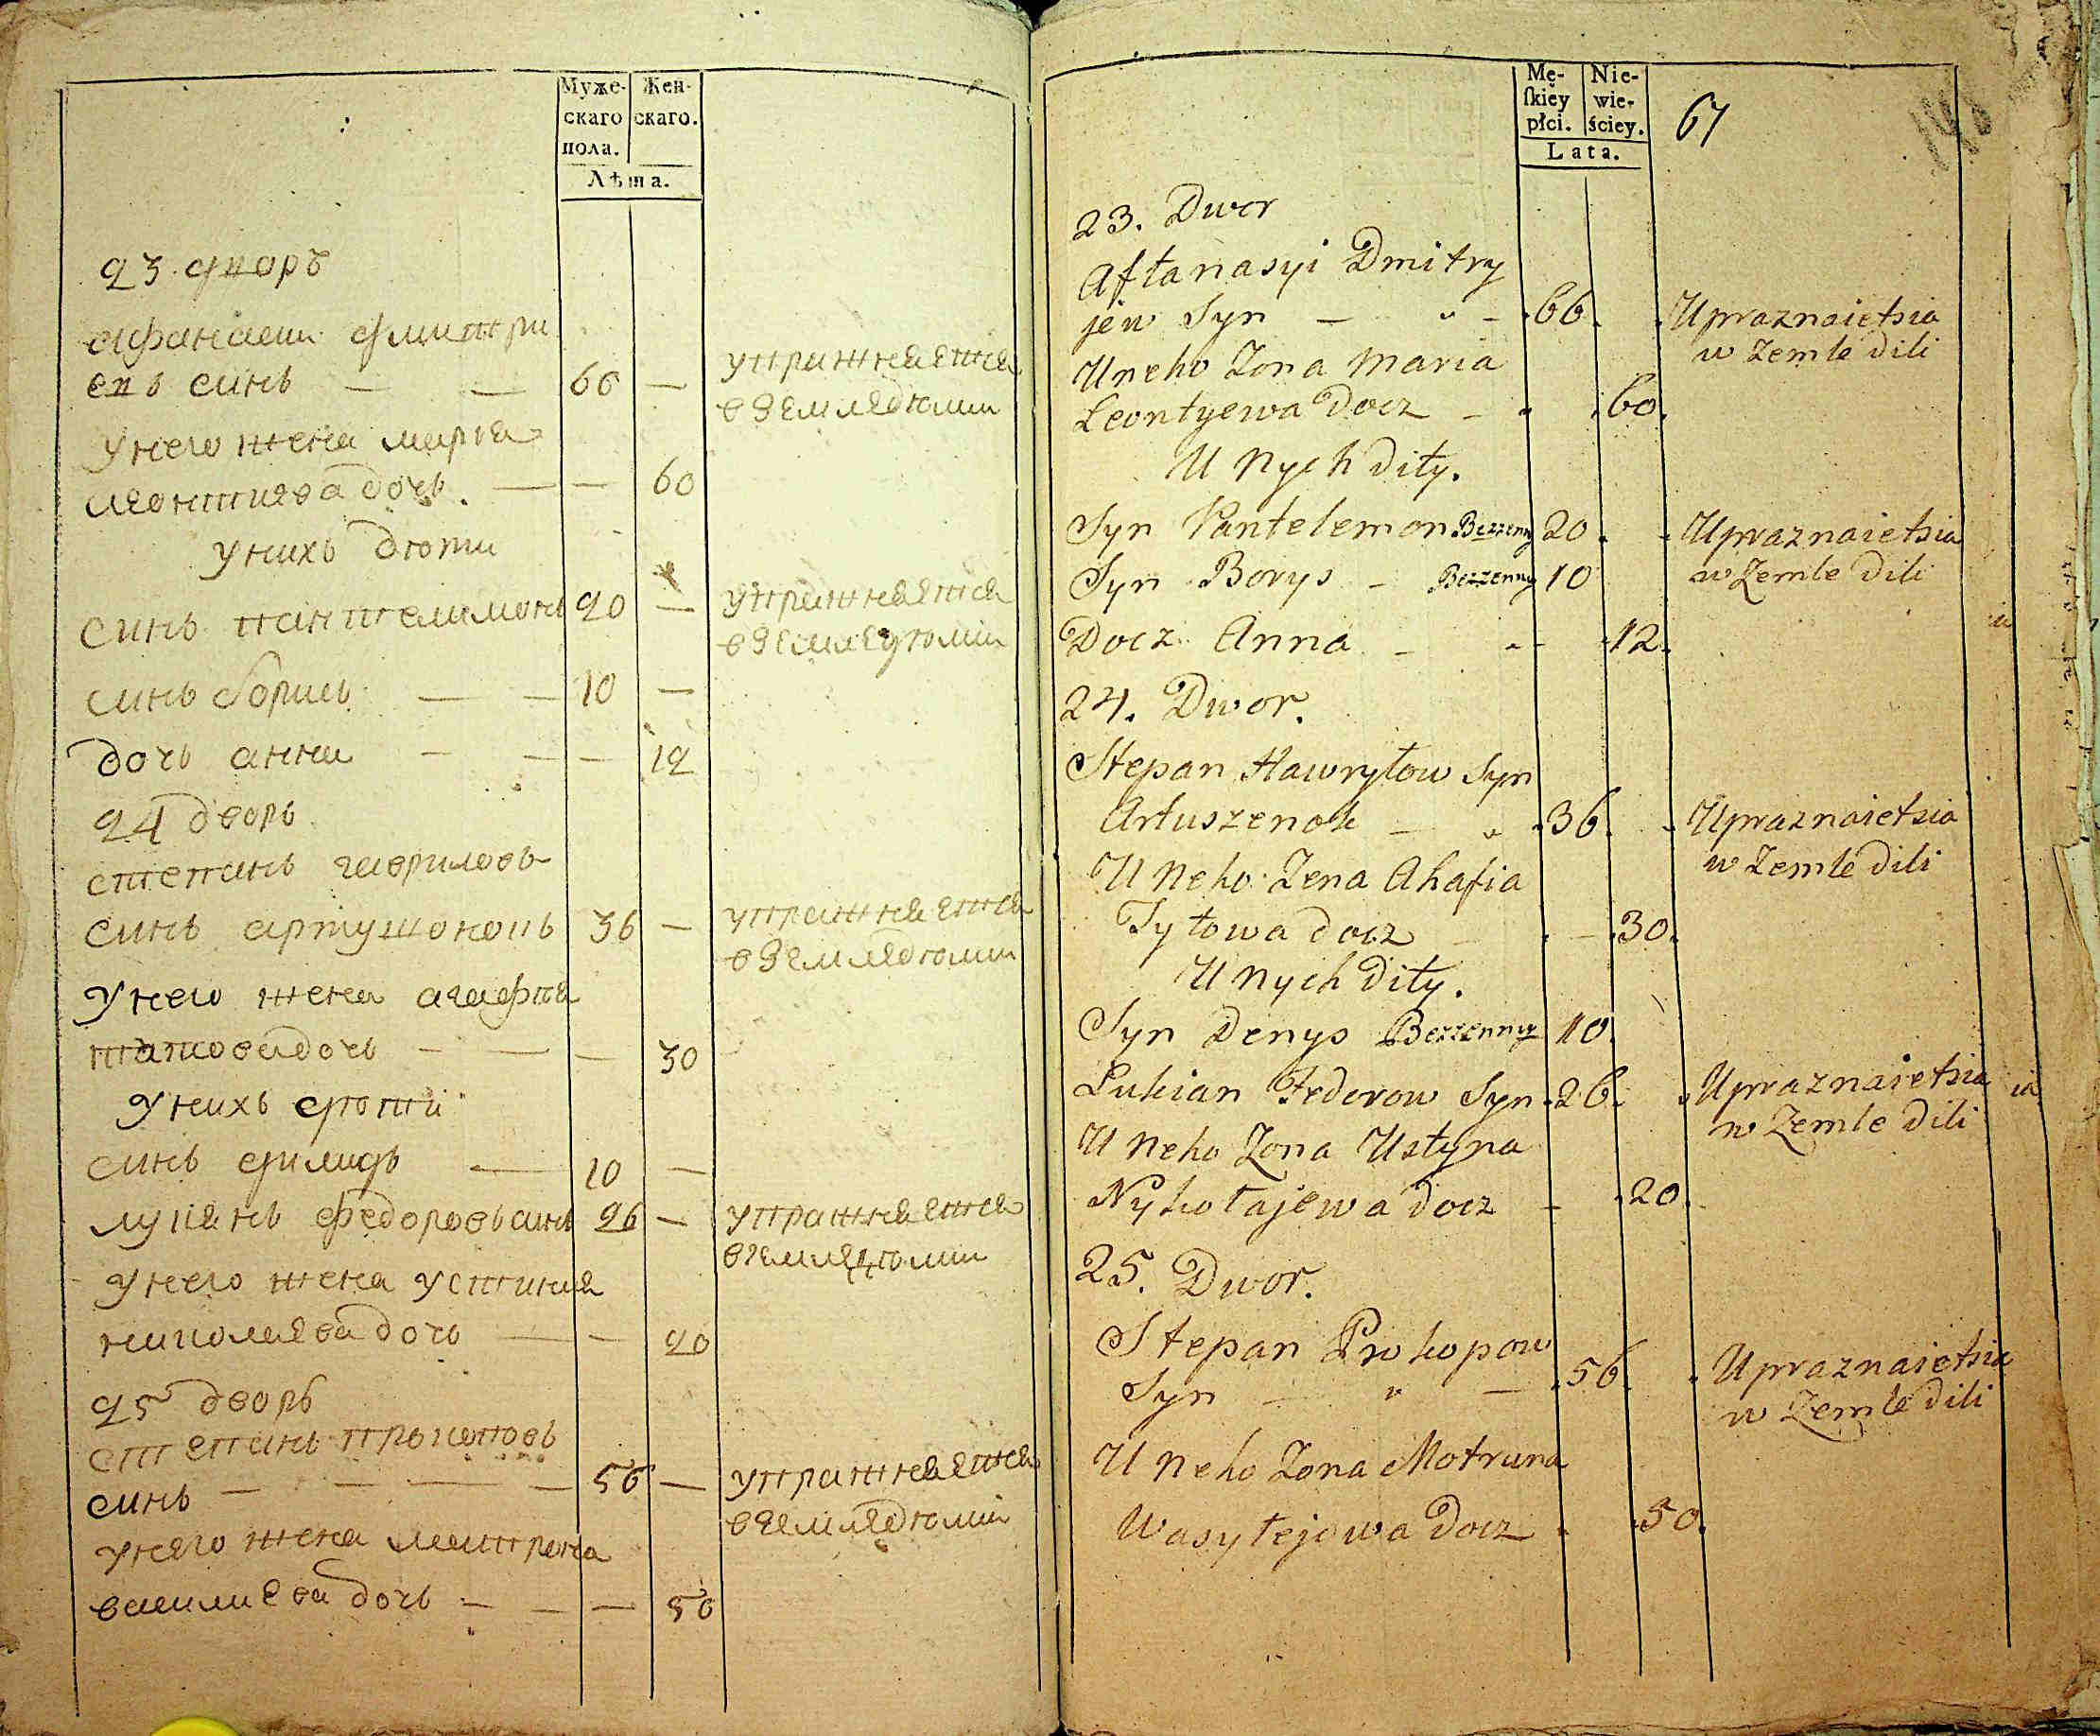 Муже-
скаго
пола.
Жен-
скаго.
Лѣта.
23. дворъ
афанасии дмитри
евъ синъ — — 66 — упражняится
в земледюлии
у него жена мария
леонтиева дочь. — — 60
у нихъ дюти
синъ пантелимонъ 20 — упражняится
в земледюлии
синъ борись — — 10 —
дочь анна — — — 12
24 дворь
степанъ гавриловъ
синъ артушонокъ 36 — упражняится
в земледюлии
у него жена агафия
дочь — — — 30
у нихъ дюти
синъ — 10 —
лукянъ федоровъ синъ 26 — упражняится
в земледюлии
у него жена устиния
николаева дочь — — 20
25 дворъ
степанъ прокоповъ
синъ — — — — 56 — упражняится
в земледюлии
у него жена матрона
василиева дочь — — — 50
Mę-
ſkiéy
płci.
Nie-
wie-
ściey.
Lata.
67
23. Dwor
Aftanasyi Dmitry
jew Syn — " — 66. Upraznaietsia
w Zemle dili
Uneho Zona Maria
Leontyewa Docz — 60.
U Nych dity.
Syn Pantelemon Bezzenny 20. Upraznaietsia
w Zemle dili
Syn Borys — Bezzenny 10
Docz Anna — 12.
24. Dwor.
Stepan Hawryłow Syn
Artuszenok — " 36. Upraznaietsia
w Zemle dili
U Neho Zena Ahafia
Tytowa docz — 30.
U Nych Dity.
Syn Denys Bezzenny 10
Lukian Fedorow Syn 26. Upraznaietsia
w Zemle dili
U Neho Zona Ustyna
Nykołajewa docz — 20.
25. Dwor.
Stepan Prokopow
Syn — " — 56. Upraznaietsia
w Zemle dili
U Neho Zona Motruna
Wasylejowa Docz 50.